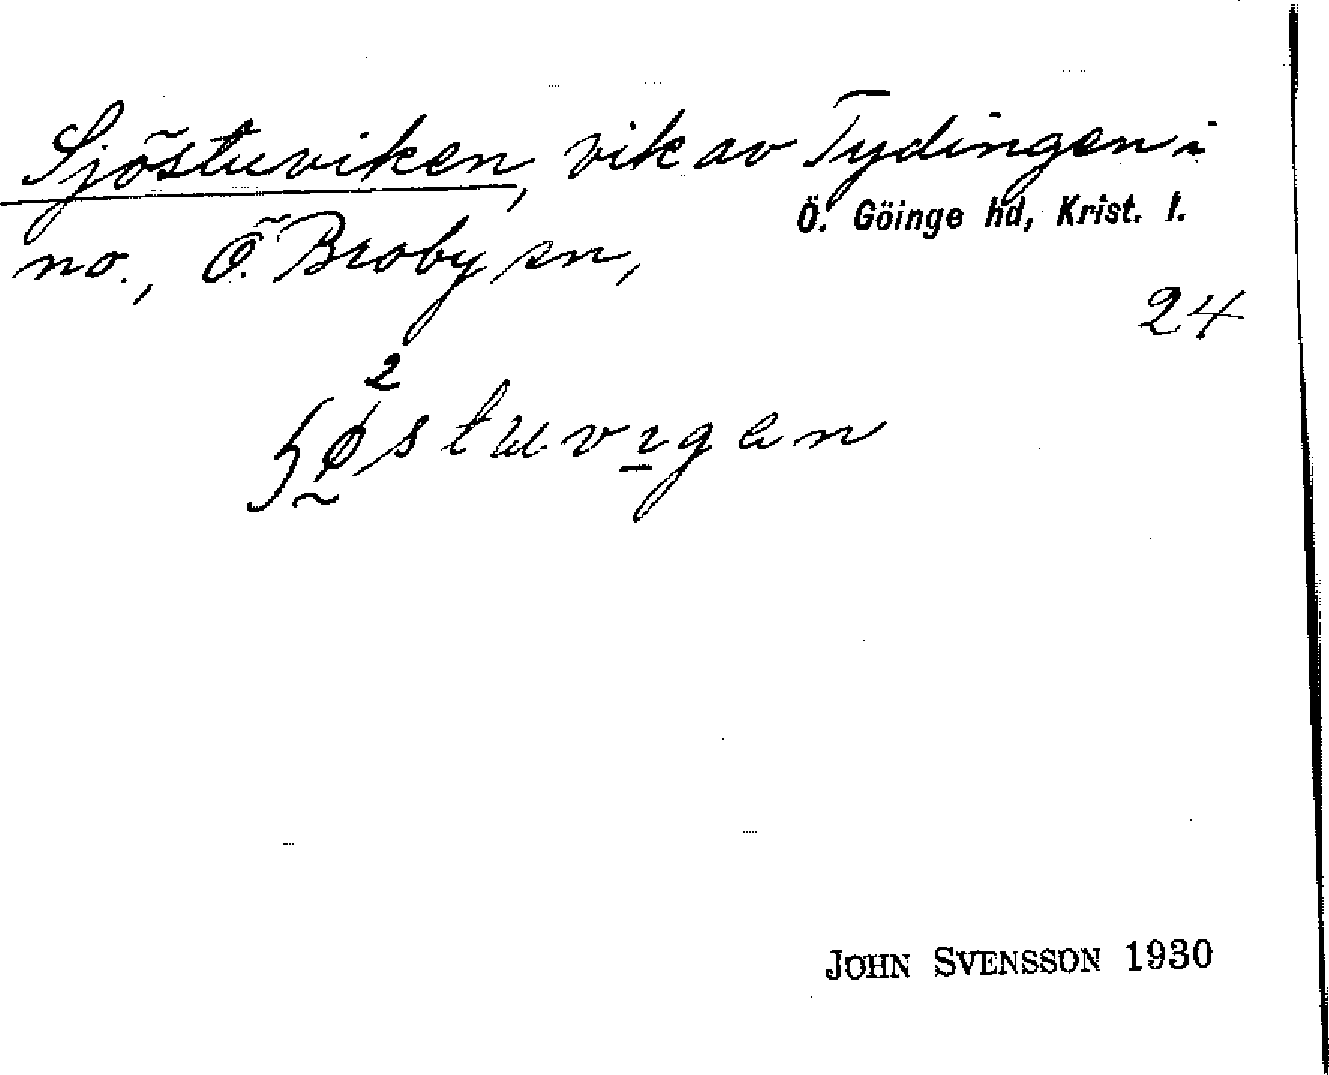 Sjöstuviken, vik av Tydingen i
no., Ö. Broby sn,
Ö. Göinge hd, Krist. l.
24
2
JOHN SVENSSON 1930